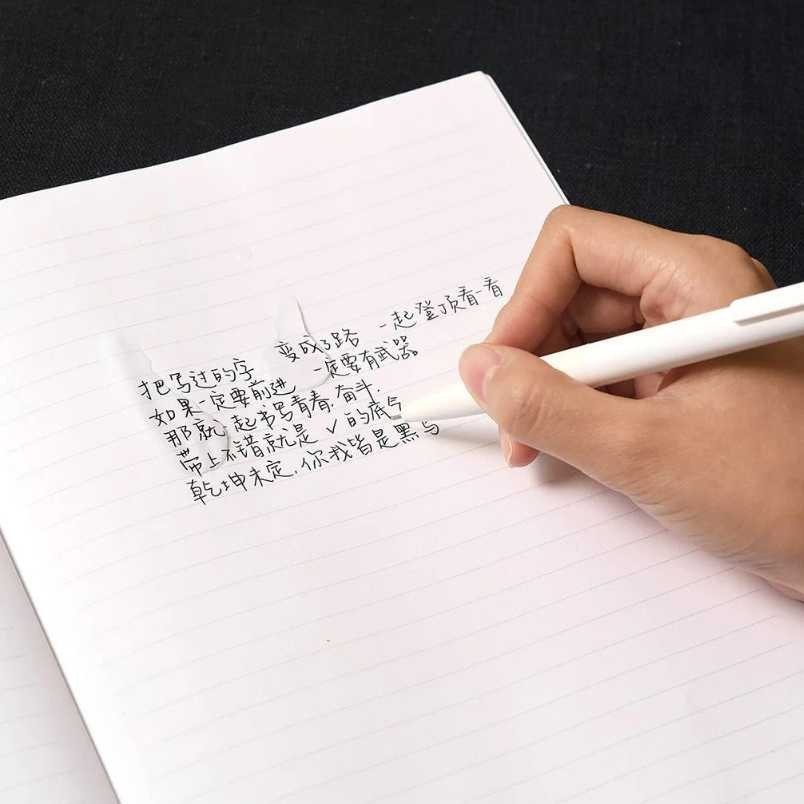 把写过的字 变成了路 一起登顶看一看
如果一定要前进 一定要有武器。
那就一起书写青春.奋斗.
带上不错就是 ✓ 的底气
乾坤未定.你我皆是黑马